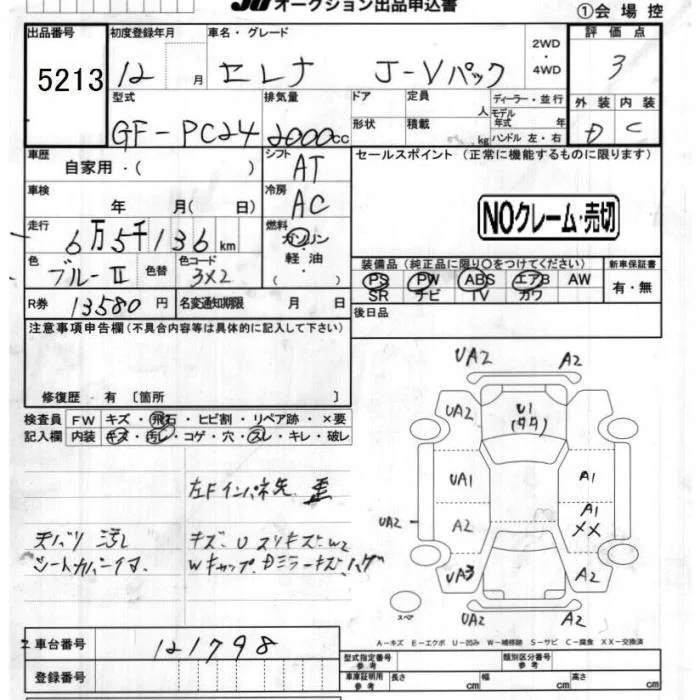 オークション出品申込書
①会場控
出品番号 5213
初度登録年月 12 月
車名・グレード セレナ J-Vパック
2WD・4WD
評価点 3
型式 GF-PC24
排気量 2000cc
ドア 形状
定員 人
積載 kg
ディーラー・並行
モデル年式 年
ハンドル 左・右
外装 D
内装 C
車歴 自家用・( )
シフト AT
セールスポイント (正常に機能するものに限ります)
車検 年 月( 日)
冷房 AC
NOクレーム・売切
走行 6万5千136km
燃料 ガソリン・軽油・( )
色 ブルーII 色替
色コード 3X2
装備品 (純正品に限り○をつけてください)
PS PW ABS エアB AW
SR ナビ TV カワ
新車保証書 有・無
R券 13580円
名変通知期限 月 日
後日品
注意事項申告欄(不具合内容等は具体的に記入して下さい)
修復歴・有〔箇所 〕
検査員記入欄
FW キズ・飛石・ヒビ割・リペア跡・×要
内装 キズ・汚レ・コゲ・穴・スレ・キレ・破レ
左Fインパネ先 歪
天バリ 汚レ
キズ、U スリキズ、W2
シートカバー
Wキャップ、Dミラーキズ、ハゲ
UA2 A2
UA2 U1
UA1 A1
A1
UA2 A2 XX
UA3 A2
UA2 A2
スペア
A-キズ E-エクボ U-凹み W-補修跡 S-サビ C-腐食 XX-交換済
車台番号 121798
登録番号
型式指定番号 参考
類別区分番号 参考
車庫証明用 参考 長さ cm 幅 cm 高さ cm